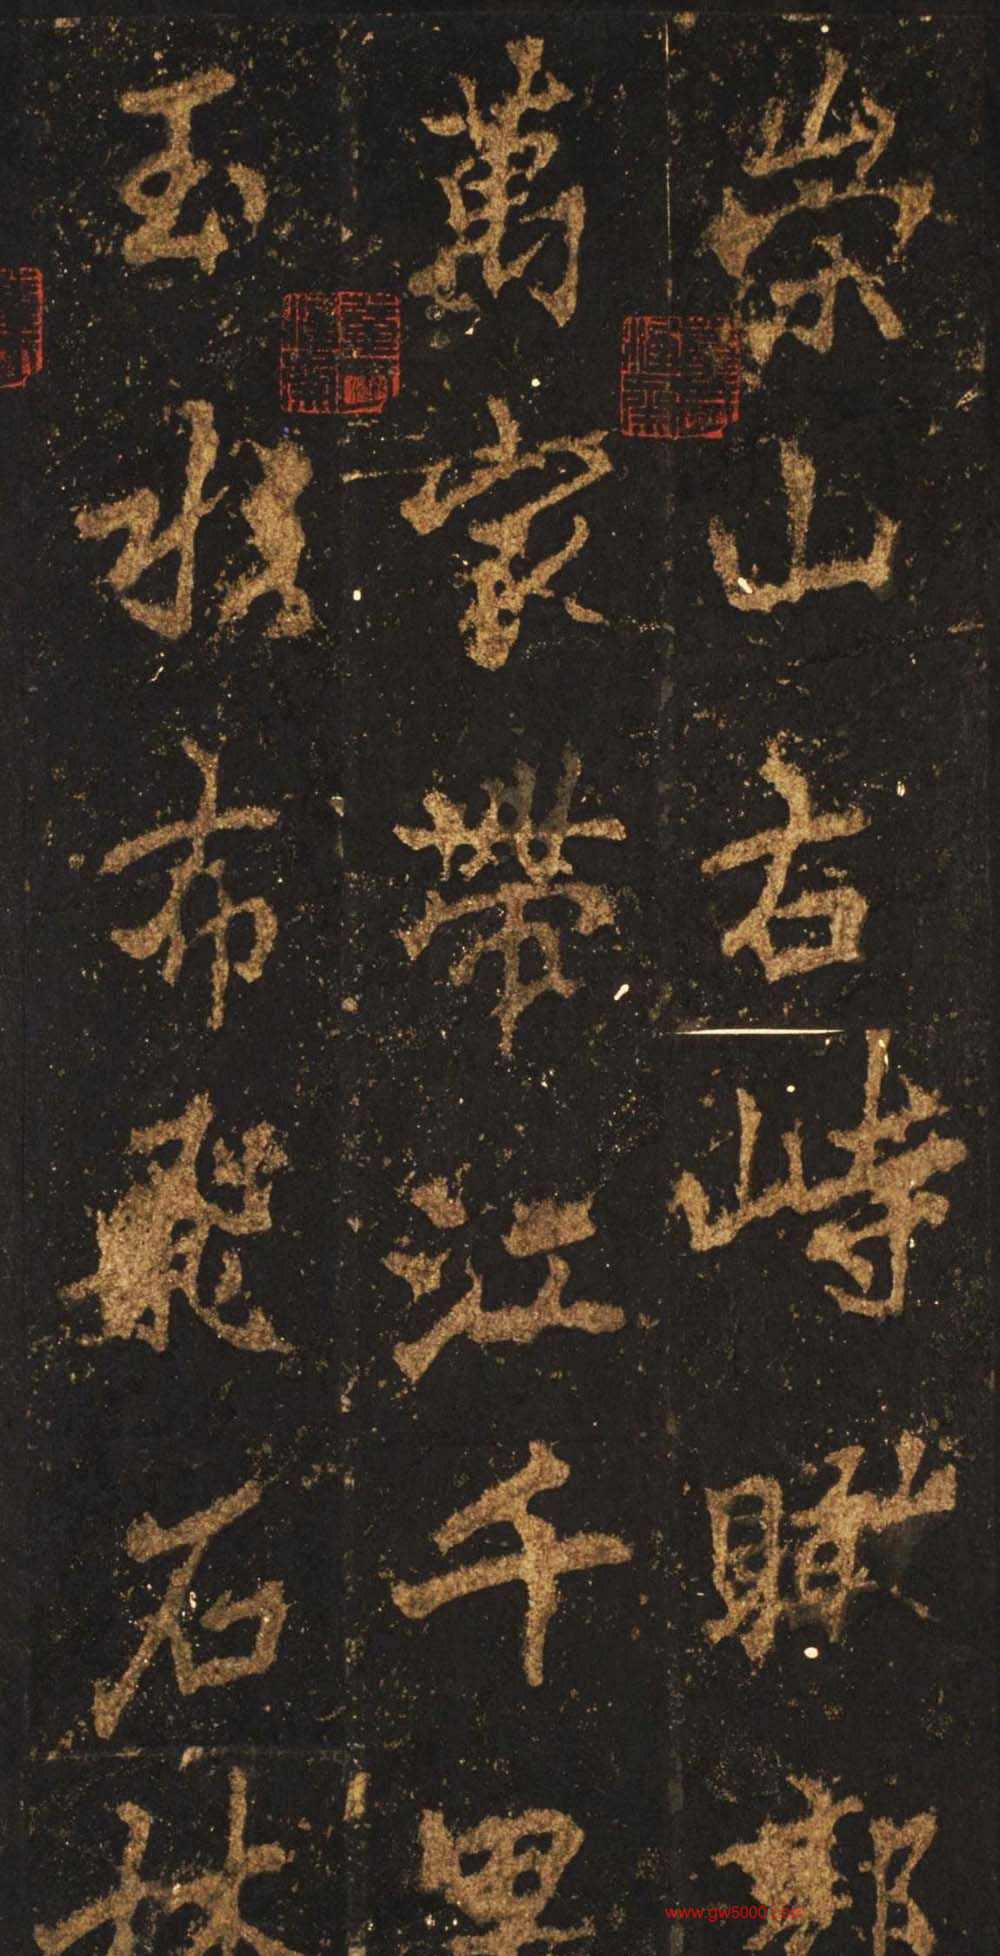 崇山右峙瞰郭
萬家帶江千里
玉水布飛石林
www.gw5000.com